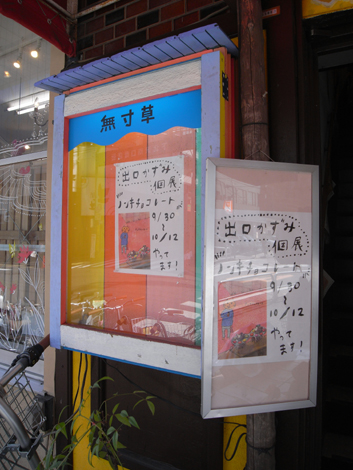 無寸草
出口かずみ
個展
ノンキチョコレート
9/30
〜
10/12
やって
ます!
出口かずみ
個展
ノンキチョコレート
9/30
〜
10/12
やって
ます!